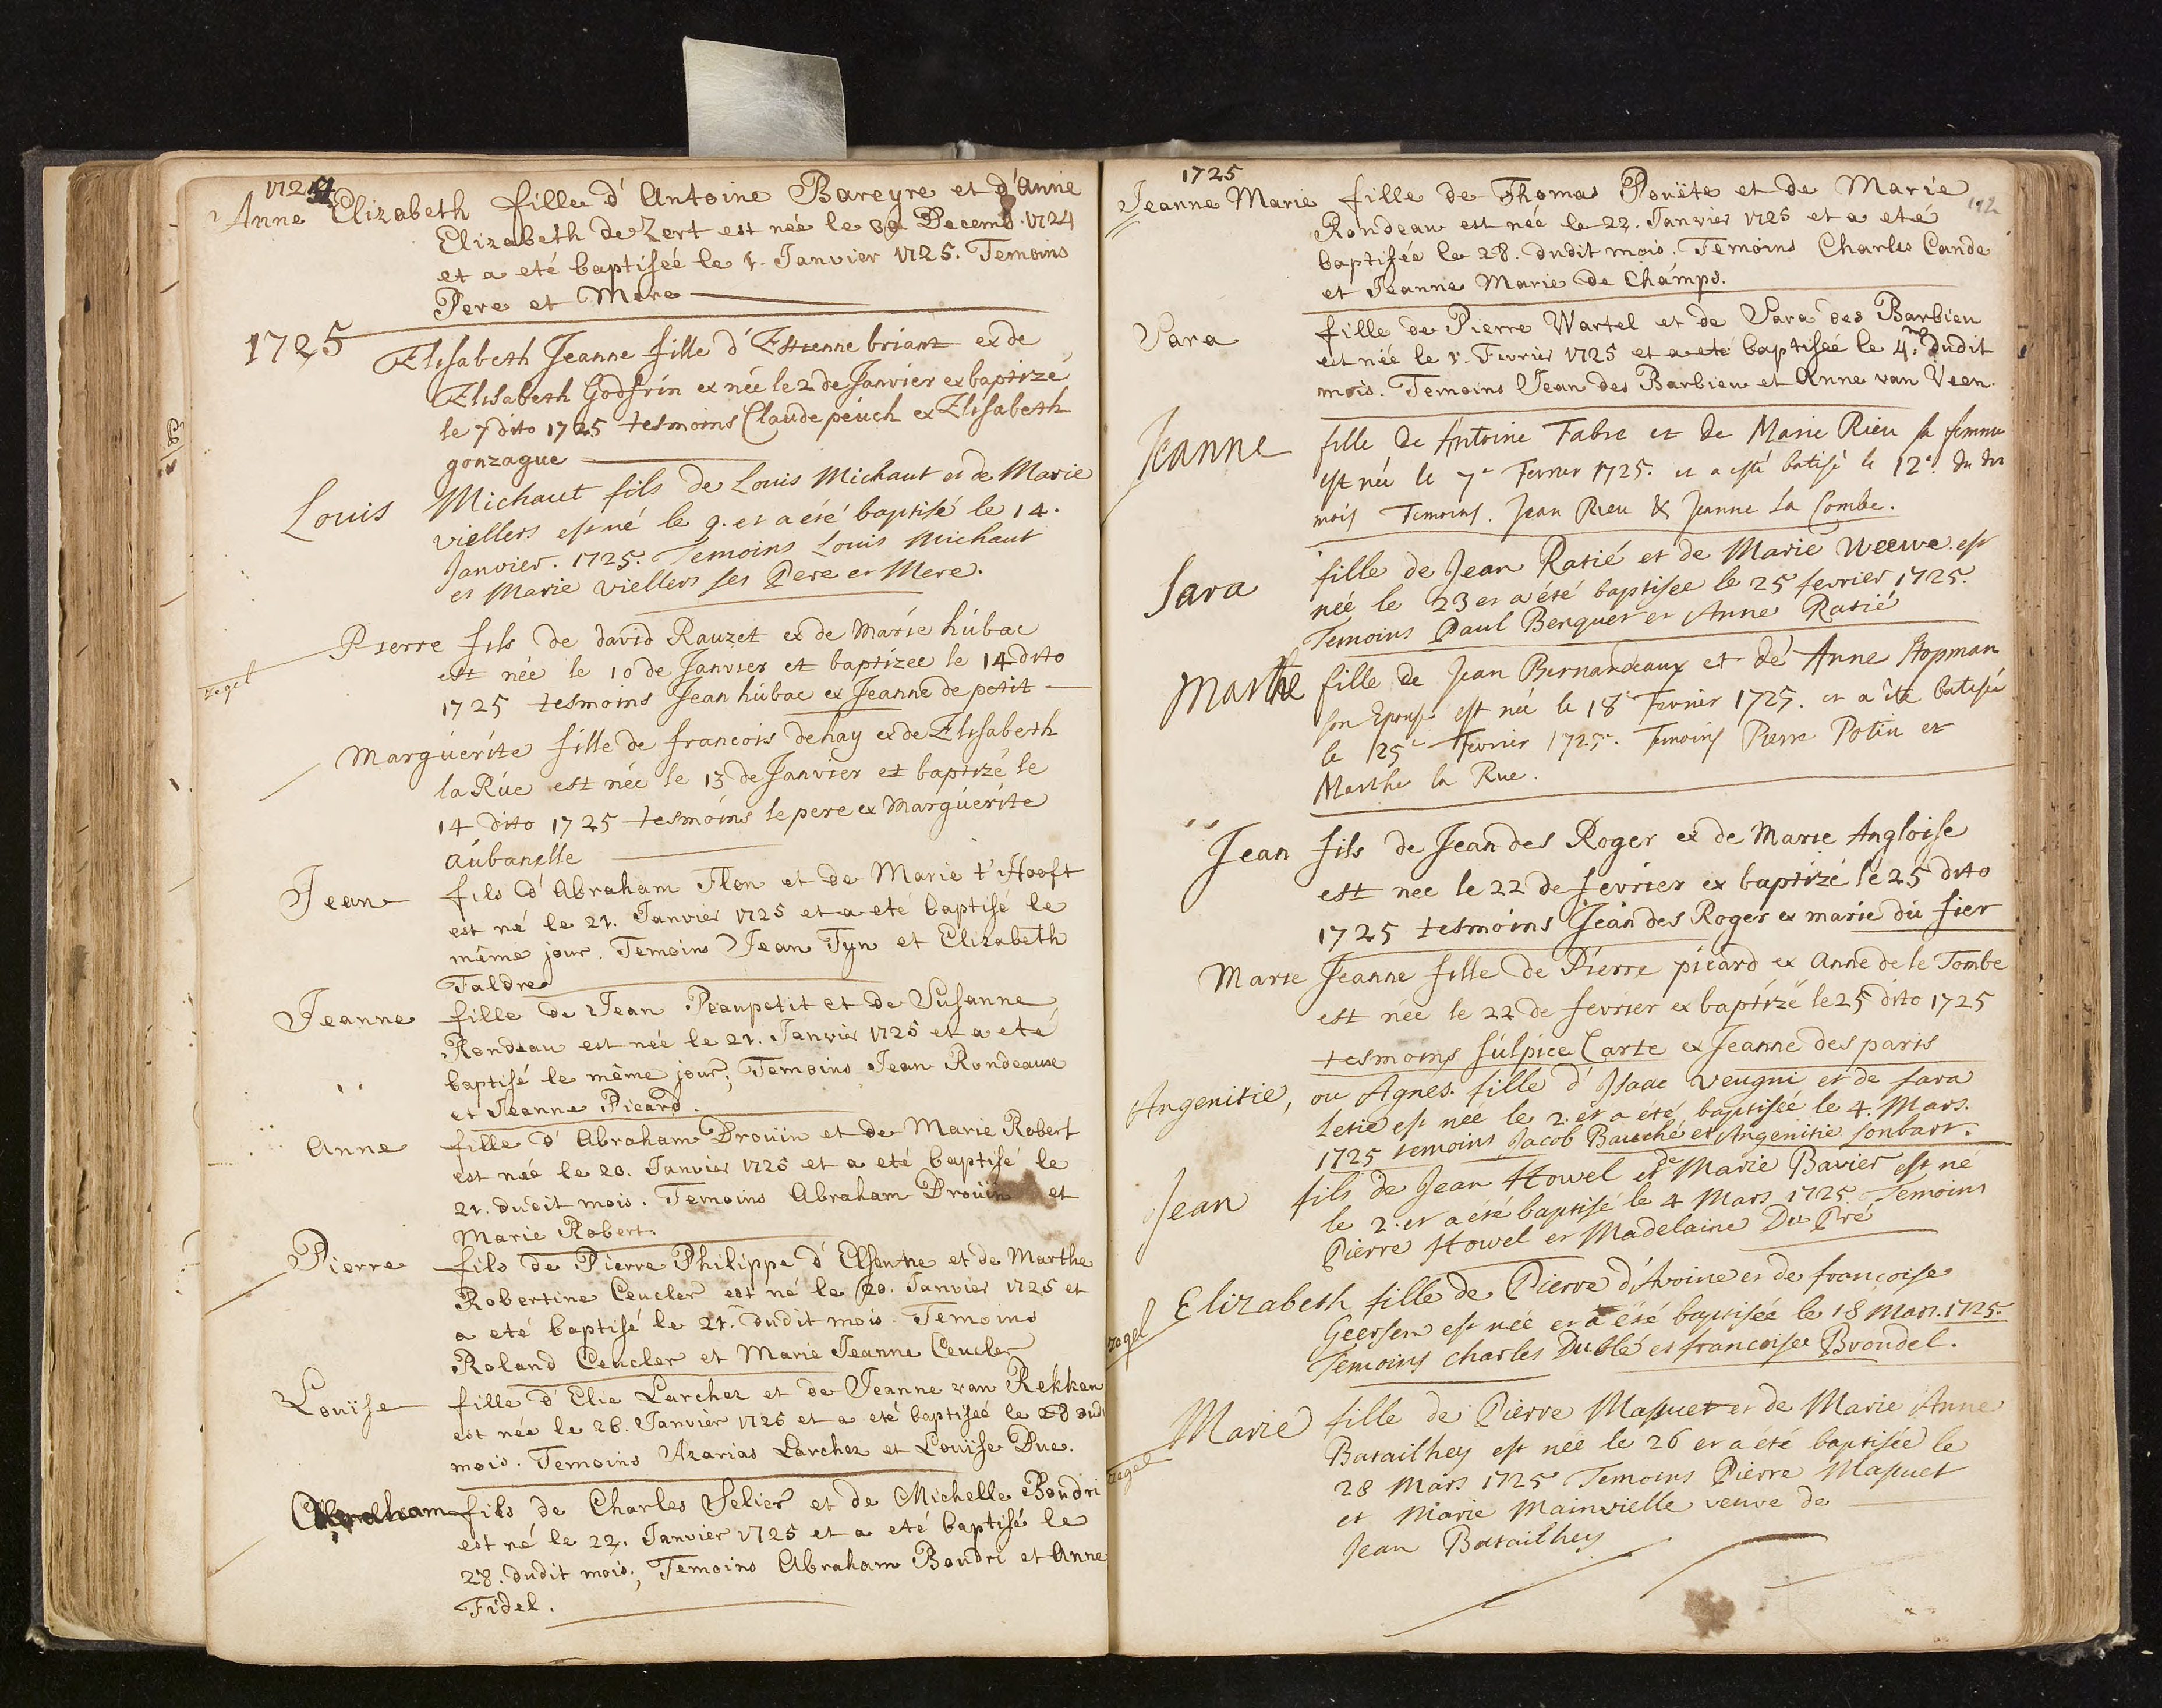 1724
Anne Elizabeth fille d'Antoine Bareyre et d'Anne
Elizabeth de Zert est née le 30 Decemb. 1724
et a eté baptiseé le 1. Janvier 1725. Temoins
Pere et Mere
1725
Elisabeth Jeanne fille d'Estienne briant et de
Elisabeth Godfrin et née le 2 de Janvier et baptizé
le 7 dito 1725 tesmoins Claude peuch et Elisabeth
gonzague
Louis Michaut fils de Louis Michaut et de Marie
viellers est né le 9. et a été baptisé le 14.
Janvier. 1725. Temoins Louis Michaut
et Marie viellers ses Pere et Mere.
Pierre fils de david Rauzet et de Marie húbac
est née le 10 de Janvier et baptizee le 14 dito
zegel
1725 tesmoins Jean húbac et Jeanne de petit
Marguerite fille de francois dehay et de Elisabeth
la Rúe est née le 13 de Janvier et baptizé le
14 dito 1725 tesmoins le pere et Marguerite
aúbanelle
Jean fils d'Abraham Flon et de Marie t'Hooft
est né le 21. Janvier 1725 et a eté baptisé le
même jour. Temoins Jean Tyn et Elizabeth
Faldre
Jeanne fille de Jean Peaupetit et de Susanne
Rondeau est née le 21. Janvier 1725 et a eté
baptisé le même jour; Temoins Jean Rondeaux
et Jeanne Picard.
Anne fille d'Abraham Drouïn et de Marie Robert
est née le 20. Janvier 1725 et a eté baptisé le
21. dudit mois. Temoins Abraham Drouïn et
Marie Robert.
Pierre fils de Pierre Philippe d'Elsenne et de Marthe
Robertine Ceucler est né le 20. Janvier 1725 et
a eté baptisé le 21. dudit mois. Temoins
Roland Ceucler et Marie Jeanne Ceucler
Louïse fille d'Elie Larchez et de Jeanne van Rekken
est née le 26. Janvier 1725 et a eté baptiseé le 28 dud
mois. Temoins Azarias Larchez et Louïse Duc.
Abraham fils de Charles Selier et de Michelle Boudri
est né le 22. Janvier 1725 et a eté baptisé le
28. dudit mois; Temoins Abraham Boudri et Anne
Fidel.
1725
Jeanne Marie fille de Thomas Pouëte et de Marie
192
Rondeau est née le 22. Janvier 1725 et a eté
baptisée le 28. dudit mois. Temoins Charles Cande
et Jeanne Marie de Champs.
Sara fille de Pierre Wartel et de Sara des Barbieu
est née le 1. Fevrier 1725 et a eté baptiseé le 4. dudit
mois. Temoins Jean des Barbieu et Anne van Veen.
Jeanne fille de Antoine Fabre et de Marie Rieu sa femme
est née le 7e Fevrier 1725. et a esté batisé le 12e. du dit
mois Temoins. Jean Rieu & Jeanne La Combe.
Sara fille de Jean Ratié et de Marie Weewe est
née le 23 et a été baptisee le 25 fevrier 1725.
Temoins Paul Berquer et Anne Ratié
Marthe fille de Jean Bernardeaux et de Anne Hopman
son Epouse est née le 18e Fevrier 1725. et a été batisée
le 25e Fevrier 1725. Temoins Pierre Potin et
Marthe la Rue.
Jean fils de Jean des Roger et de Marie Angloise
est née le 22 de fevrier et baptizé le 25 dito
1725 tesmoins Jean des Roger et marie dú fier
Marie Jeanne fille de Pierre picard et Anne de le Tombe
est née le 22 de fevrier et baptizé le 25 dito 1725
tesmoins súlpice Carte et Jeanne des paris
Angenitie, ou Agnes. fille d'Isaac Veugni et de Sara
Letie est née le 2. et a été baptisée le 4. Mars.
1725 temoins Jacob Bauché et Angenitie sonbart.
Jean fils de Jean Howel et de Marie Bavier est né
le 2. et a été baptisé le 4 Mars 1725. Temoins
Pierre Howel et Madelaine Du Pré
Elizabeth fille de Pierre d'Avoine et de francoise
zegel
Geersen est née et a été baptisée le 18 Mars. 1725.
Temoins charles Dublé et francoise Brondel.
Marie fille de Pierre Masuet et de Marie Anne
Batailhey est née le 26 et a eté baptisée le
zegel
28 Mars 1725 Temoins Pierre Masuet
et Marie Mainvielle veuve de
Jean Batailhey